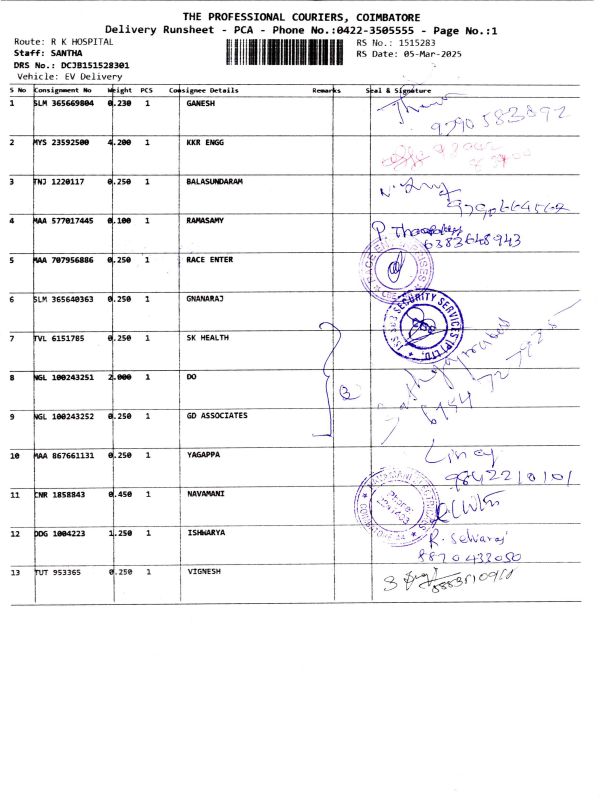 THE PROFESSIONAL COURIERS, COIMBATORE
Delivery Runsheet - PCA - Phone No.:0422-3505555 - Page No.:1
Route: R K HOSPITAL
RS No.: 1515283
Staff: SANTHA
RS Date: 05-Mar-2025
DRS No.: DCJB151528301
Vehicle: EV Delivery
S No Consignment No Weight PCS Consignee Details Remarks Seal & Signature
1 SLM 365669804 0.230 1 GANESH
9790583092
2 MYS 23592500 4.200 1 KKR ENGG
3 TNJ 1220117 0.250 1 BALASUNDARAM
4 MAA 577017445 0.100 1 RAMASAMY
6383648943
5 MAA 707956886 0.250 1 RACE ENTER
6 SLM 365640363 0.250 1 GNANARAJ
SECURITY SERVICES (P) LTD.
7 TVL 6151785 0.250 1 SK HEALTH
8 NGL 100243251 2.000 1 DO
3
9 NGL 100243252 0.250 1 GD ASSOCIATES
10 MAA 867661131 0.250 1 YAGAPPA
Lincy
9842210101
11 CNR 1858843 0.450 1 NAVAMANI
Phone:
12 DDG 1004223 1.250 1 ISHWARYA
R. Selvaraj
8870433050
13 TUT 953365 0.250 1 VIGNESH